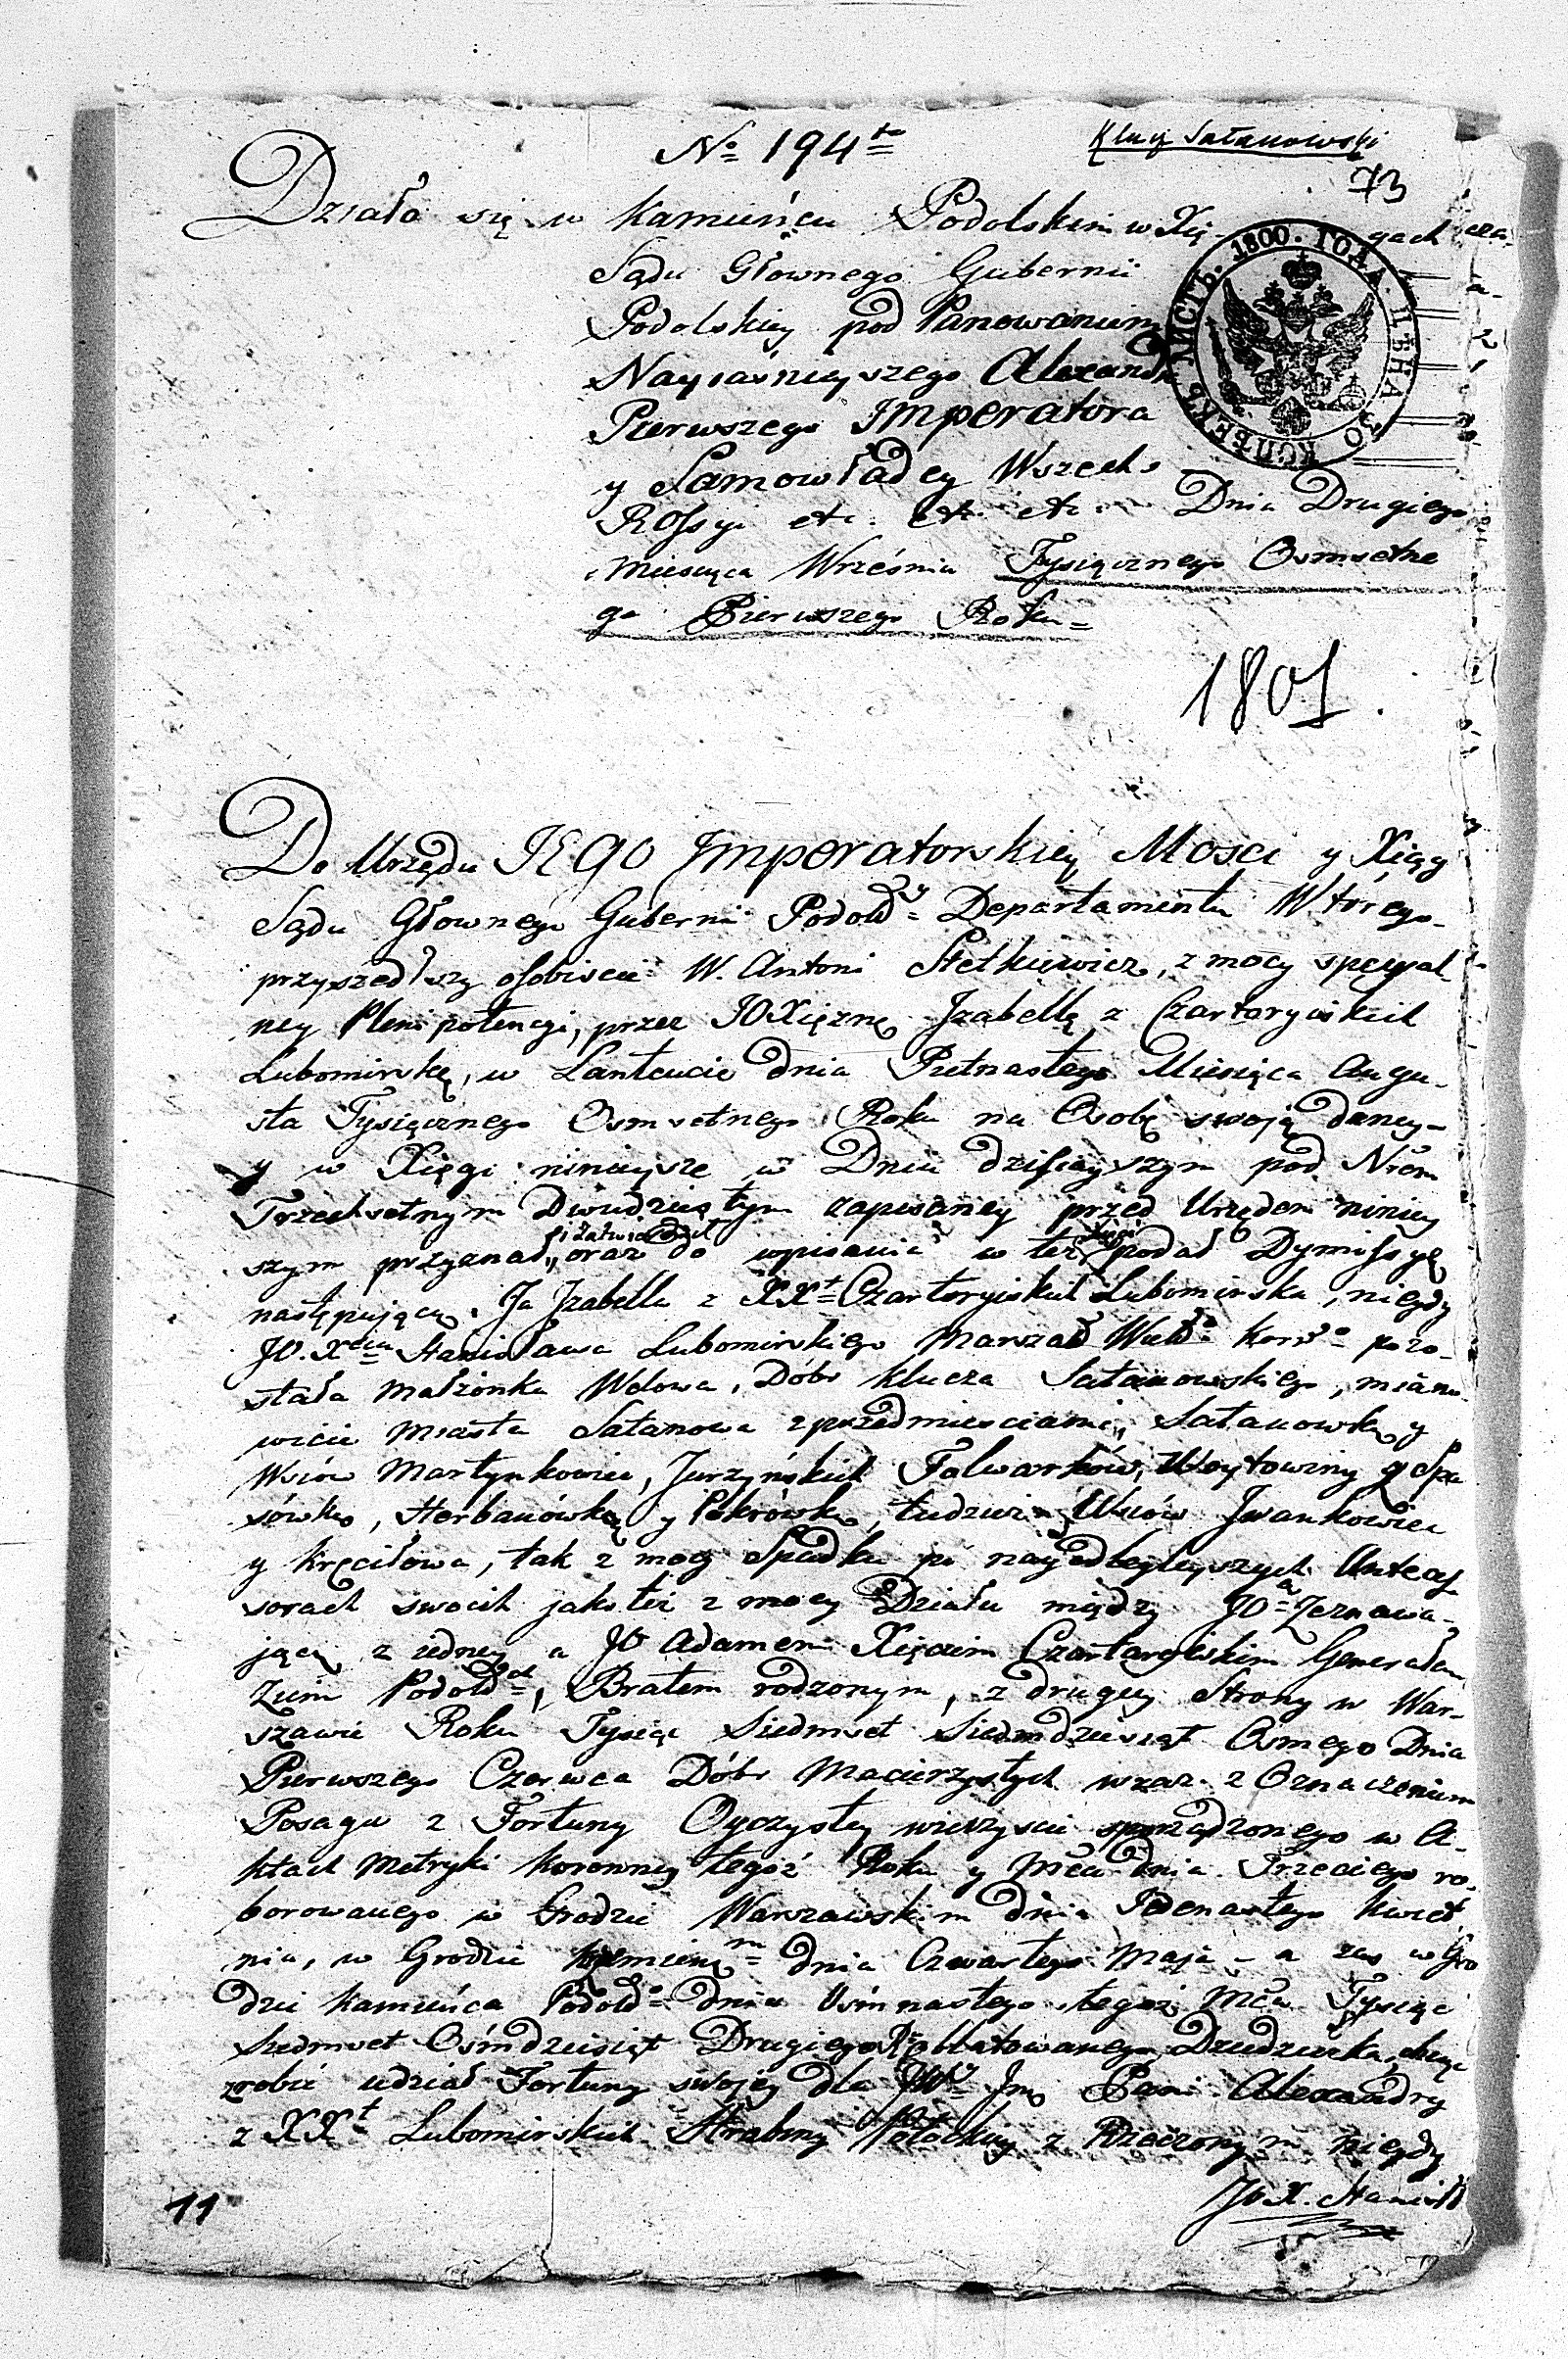 No 194to
Klucz Satanowski
73
Działo się w Kamieńcu Podolskim w Xię-gach
Sądu Głownego Gubernii
Podolskiey pod Panowaniem
Nayiaśnieyszego Alexandra
Pierwszego Imperatora
y Samowładcy Wszech
Rossyi etc. etc. etc. Dnia Drugiego
Miesiąca Września Tysiącznego Osmsetne
go Pierwszego Roku =
ЛИСТЪ. 1800. ГОДА. ЦѢНА 30 КОПѢЕКЪ
1801.
Do Urzędu JEGO Imperatorskiey Mosci y Xiąg
Sądu Głownego Gubernii Podolsy Departamentu Wtórego
przyszedłszy osobiscie W. Antoni Stetkiewicz, z mocy specyal-
ney Plenipotencyi, przez JOXiężnę Izabellę z Czartoryiskich
Lubomirskę, w Lantcucie dnia Pietnastego Miesiąca Augu-
sta Tysiącznego Osmsetnego Roku na Osobę swoią daney
y w Xięgi ninieysze w Dniu dzisieyszym pod Nrem
Trzechsetnym Dwudziestym zapisaney przed Urzędem niniey
szym przyznał, i zatwierdził oraz do wpisania w też Xięgi podał Dymissyę
następuiącą. Ja Izabella z XXt Czartoryiskich Lubomirska, niegdy
JO. Xcia Stanisława Lubomirskiego Marszał Wielo Koro pozo-
stała Małżonka Wdowa, Dóbr Klucza Satanowskiego, miano-
wicie Miasta Satanowa z przedmiesciami, Satanowką y
Wsiow Martynkowiec, Jurzyńskich Folwarków, Woytowiny y Spa
sówką, Herbanówką y Pokrówką, tudzież Wsiów Iwankowiec
y Kręciłowa, tak z mocy Spadku po nayodlegleyszych Anteces
sorach swoich jako też z mocy Działu między JOa Zeznawa-
jącą z iedney a JO Adamem Xięciem Czartoryiskim Generałem
Ziem Podolch, Bratem rodzonym, z drugiey Strony w War-
szawie Roku Tysiąc Siedmset Siedmdziesiąt Osmego Dnia
Pierwszego Czerwca Dóbr Macierzystych wraz z Oznaczeniem
Posagu z Fortuny Oyczystey wieczyscie sporządzonego w A-
ktach Metryki Koronney tegoż Roku y Mca dnia Trzeciego ro-
borowanego w Grodzie Warszawskim dnia Jedenastego Kwiet
nia, w Grodzie Krzemienm dnia Czwartego Maja - a zas w Gro
dzie Kamieńca Podolo dnia Osmnastego tegoż Mca Tysiąc
Siedmset Ośmdziesiąt Drugiego Ru oblatowanego Dziedziczka, chcąc
zrobić udział Fortuny swojey dla JWy Jmę Pani Alexandry
z XXt Lubomirskich Hrabiny Potockiey z Rzeczonym niegdy
JO X. Stanisł
11